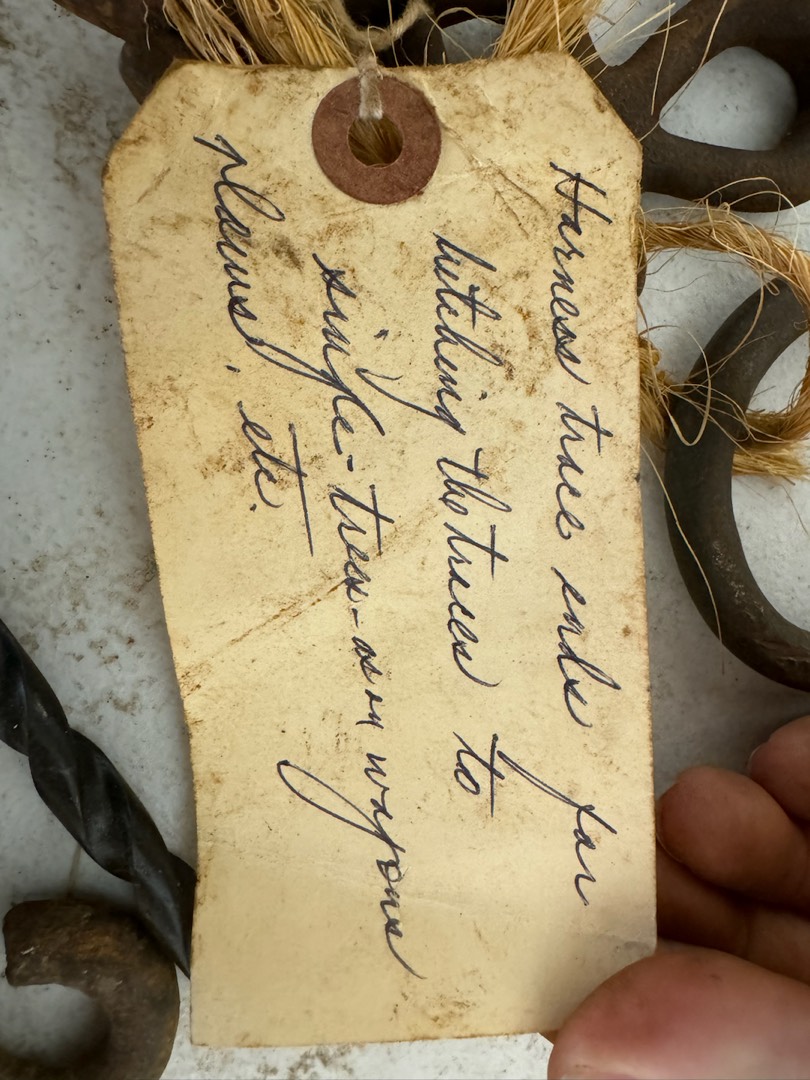 Harness trace ends for
hitching the traces to
single-trees - as on wagons
plows, etc.